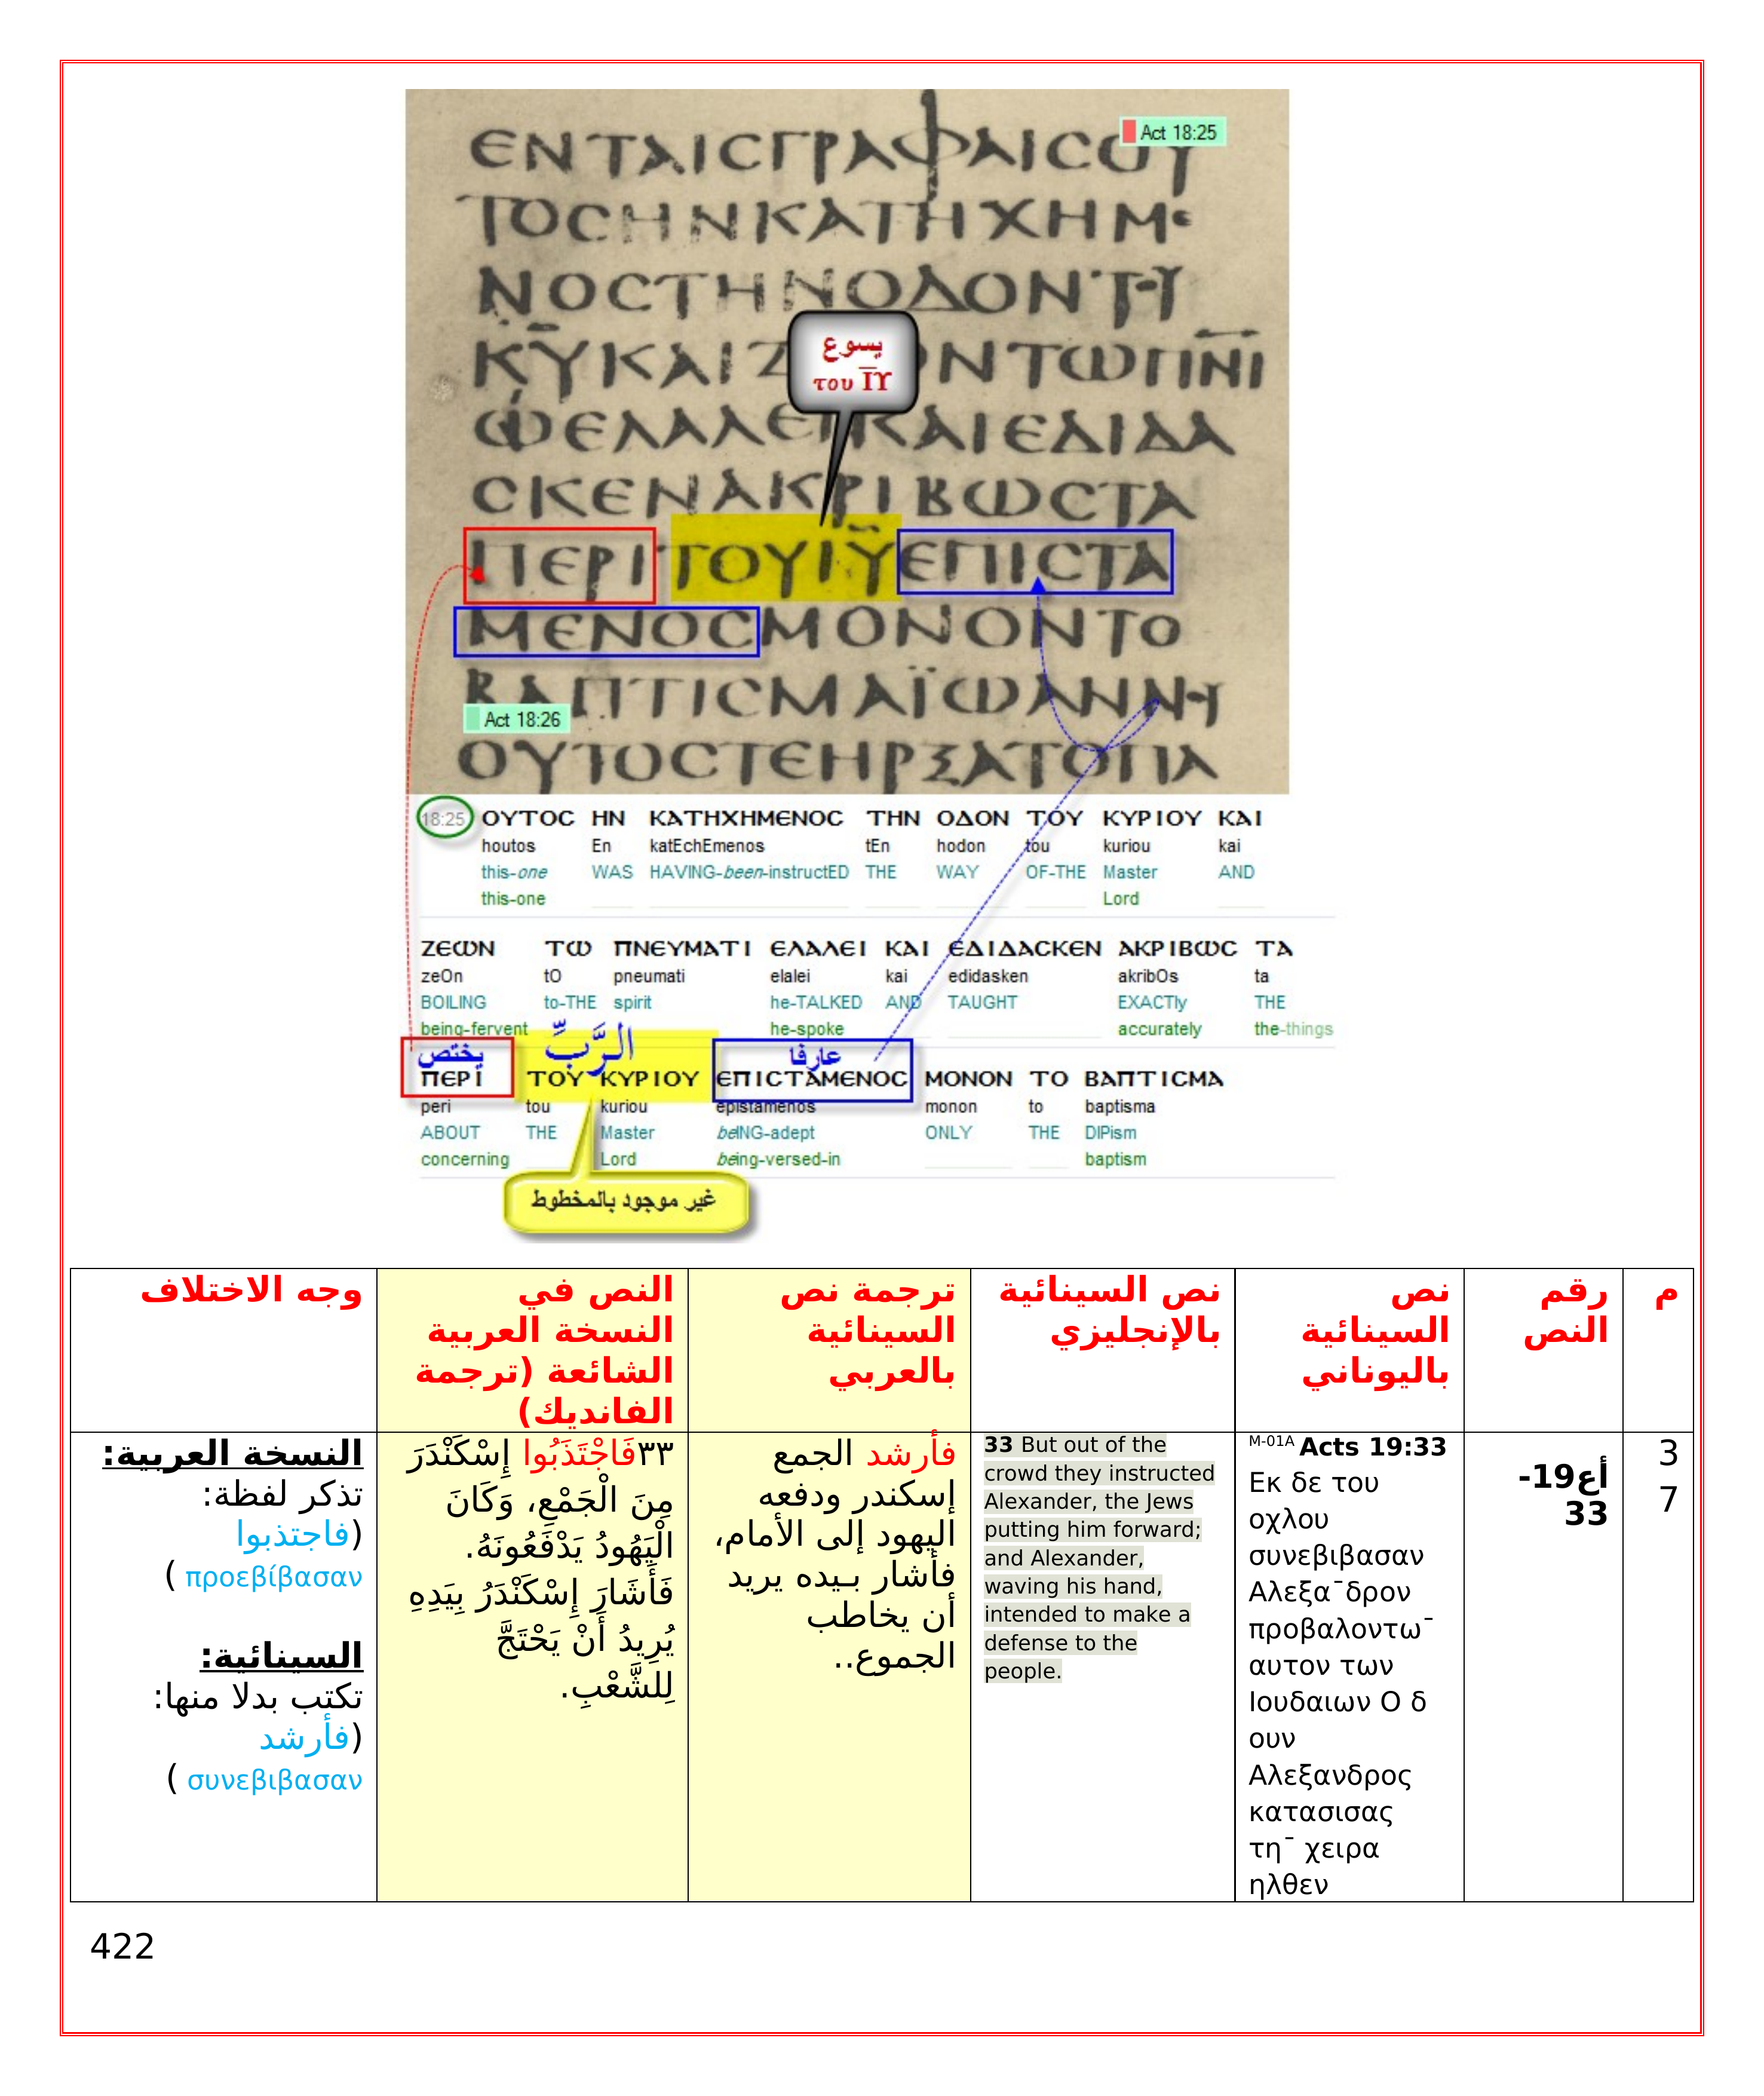 Act 18:25
ΕΝΤΑΙCΓΡΑΦΑΙCΟΥ
ΤΟCΗΝΚΑΤΗΧΗΜΕ
ΝΟCΤΗΝΟΔΟΝΤΟΥ
ΚΥΚΑΙΖ ΟΝΤΩΠΝΙ
يسوع
του ΙΥ
ΕΛΑΛΕΙΚΑΙΕΔΙΔΑ
CΚΕΝΑΚΡΙΒΩCΤΑ
ΠΕΡΙΤΟΥΙΥΕΠΙCΤΑ
ΜΕΝΟCΜΟΝΟΝΤΟ
ΒΑΠΤΙCΜΑΪΩΑΝΝΟΥ
Act 18:26
ΟΥΤΟCΤΕΗΡΞΑΤΟΠΑ
18:25 ΟΥΤΟC ΗΝ ΚΑΤΗΧΗΜΕΝΟC ΤΗΝ ΟΔΟΝ ΤΟΥ ΚΥΡΙΟΥ ΚΑΙ
houtos En katEchEmenos tEn hodon tou kuriou kai
this-one WAS HAVING-been-instructED THE WAY OF-THE Master AND
this-one Lord
ΖΕΩΝ ΤΩ ΠΝΕΥΜΑΤΙ ΕΛΑΛΕΙ ΚΑΙ ΕΔΙΔΑCΚΕΝ ΑΚΡΙΒΩC ΤΑ
zeOn tO pneumati elalei kai edidasken akribOs ta
BOILING to-THE spirit he-TALKED AND TAUGHT EXACTly THE
being-fervent he-spoke accurately the-things
يختص الرَّبِّ عارفا
ΠΕΡΙ ΤΟΥ ΚΥΡΙΟΥ ΕΠΙCΤΑΜΕΝΟC ΜΟΝΟΝ ΤΟ ΒΑΠΤΙCΜΑ
peri tou kuriou epistamenos monon to baptisma
ABOUT THE Master beING-adept ONLY THE DIPism
concerning Lord being-versed-in baptism
غير موجود بالمخطوط
م
رقم
النص
نص
السينائية
باليوناني
نص السينائية
بالإنجليزي
ترجمة نص
السينائية
بالعربي
النص في
النسخة العربية
الشائعة (ترجمة
الفانديك)
وجه الاختلاف
3
7
أع19-
33
M-01A Acts 19:33
Εκ δε του
οχλου
συνεβιβασαν
Αλεξα¯δρον
προβαλοντω¯
αυτον των
Ιουδαιων Ο δ
ουν
Αλεξανδρος
κατασισας
τη¯ χειρα
ηλθεν
33 But out of the
crowd they instructed
Alexander, the Jews
putting him forward;
and Alexander,
waving his hand,
intended to make a
defense to the
people.
فأرشد الجمع
إسكندر ودفعه
اليهود إلى الأمام،
فأشار بـيده يريد
أن يخاطب
الجموع..
٣٣فَاجْتَذَبُوا إِسْكَنْدَرَ
مِنَ الْجَمْعِ، وَكَانَ
الْيَهُودُ يَدْفَعُونَهُ.
فَأَشَارَ إِسْكَنْدَرُ بِيَدِهِ
يُرِيدُ أَنْ يَحْتَجَّ
لِلشَّعْبِ.
النسخة العربية:
تذكر لفظة:
(فاجتذبوا
προεβίβασαν )
السينائية:
تكتب بدلا منها:
(فأرشد
συνεβιβασαν )
422